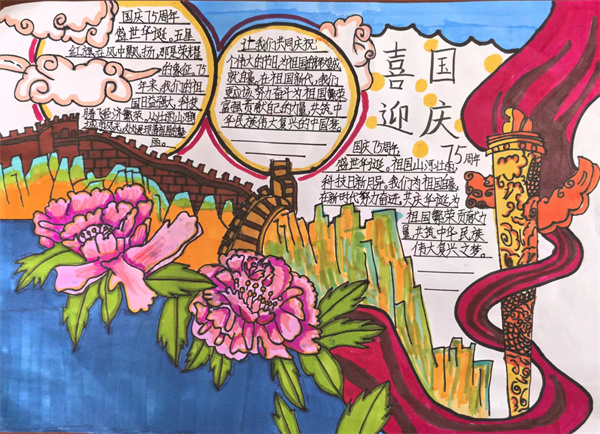 国庆75周年
盛世华诞,五星
红旗在风中飘扬,那是荣耀
的象征。75
年来,我们的祖
国日益强大,科技
腾飞经济繁荣,从壮丽山河到
丽。
让我们共同庆祝
个伟大的节日,为祖国的辉煌成
就自豪。在祖国新代,我们
更应该努力奋斗为祖国繁荣
富强贡献自己的力量,共筑中
华民族伟大复兴的中国梦。
喜迎
国庆
国庆75周年
75周年
盛世华诞。祖国山河壮丽,
科技日新月异。我们为祖国自豪,
在新时代努力奋进。共庆华诞,为
祖国繁荣贡献力
量,共筑中华民族
伟大复兴之梦。